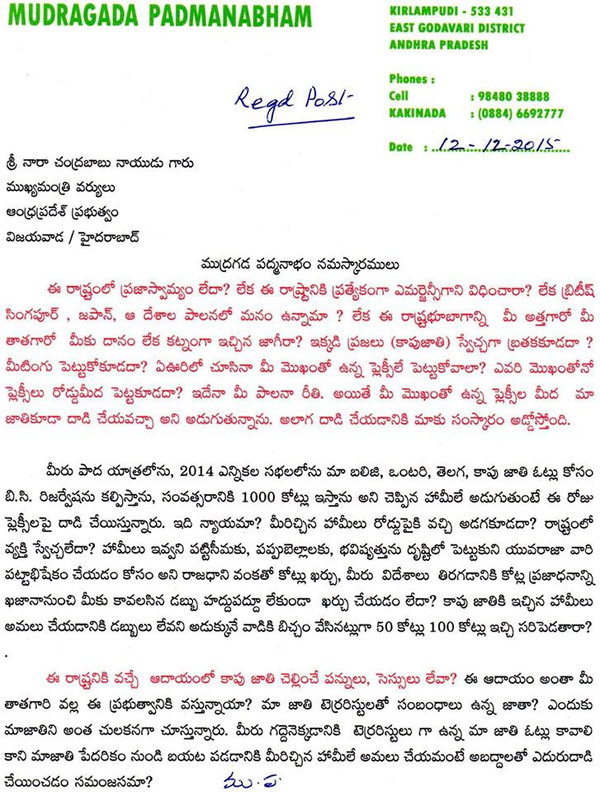 MUDRAGADA PADMANABHAM
KIRLAMPUDI - 533 431
EAST GODAVARI DISTRICT
ANDHRA PRADESH
Phones :
Cell : 98480 38888
KAKINADA : (0884) 6692777
Regd Post
Date : 12-12-2015
శ్రీ నారా చంద్రబాబు నాయుడు గారు
ముఖ్యమంత్రి వర్యులు
ఆంధ్రప్రదేశ్ ప్రభుత్వం
విజయవాడ / హైదరాబాద్
ముద్రగడ పద్మనాభం నమస్కారములు
ఈ రాష్ట్రంలో ప్రజాస్వామ్యం లేదా? లేక ఈ రాష్ట్రానికి ప్రత్యేకంగా ఎమర్జెన్సీగాని విధించారా? లేక బ్రిటీష్
సింగపూర్ , జపాన్, ఆ దేశాల పాలనలో మనం ఉన్నామా ? లేక ఈ రాష్ట్రభూభాగాన్ని మీ అత్తగారో మీ
తాతగారో మీకు దానం లేక కట్నంగా ఇచ్చిన జాగీరా? ఇక్కడి ప్రజలు (కాపుజాతి) స్వేచ్ఛగా బ్రతకకూడదా ?
మీటింగు పెట్టుకోకూడదా? ఏఊరిలో చూసినా మీ మొఖంతో ఉన్న ఫ్లెక్సీలే పెట్టుకోవాలా? ఎవరి మొఖంతోనో
ఫ్లెక్సీలు రోడ్డుమీద పెట్టకూడదా? ఇదేనా మీ పాలనా రీతి. అయితే మీ మొఖంతో ఉన్న ఫ్లెక్సీల మీద మా
జాతికూడా దాడి చేయవచ్చా అని అడుగుతున్నాను. అలాగ దాడి చేయడానికి మాకు సంస్కారం అడ్డోస్తోంది.
మీరు పాద యాత్రలోను, 2014 ఎన్నికల సభలలోను మా బలిజి, ఒంటరి, తెలగ, కాపు జాతి ఓట్లు కోసం
బి.సి. రిజర్వేషను కల్పిస్తాను, సంవత్సరానికి 1000 కోట్లు ఇస్తాను అని చెప్పిన హామీలే అడుగుతుంటే ఈ రోజు
ఫ్లెక్సీలపై దాడి చేయిస్తున్నారు. ఇది న్యాయమా? మీరిచ్చిన హామీలు రోడ్డుపైకి వచ్చి అడగకూడదా? రాష్ట్రంలో
వ్యక్తి స్వేచ్ఛలేదా? హామీలు ఇవ్వని పట్టిసీమకు, పప్పుబెల్లాలకు, భవిష్యత్తును దృష్టిలో పెట్టుకుని యువరాజా వారి
పట్టాభిషేకం చేయడం కోసం అని రాజధాని వంకతో కోట్లు ఖర్చు, మీరు విదేశాలు తిరగడానికి కోట్ల ప్రజాధనాన్ని
ఖజానానుంచి మీకు కావలసిన డబ్బు హద్దుపద్దూ లేకుండా ఖర్చు చేయడం లేదా? కాపు జాతికి ఇచ్చిన హామీలు
అమలు చేయడానికి డబ్బులు లేవని అడుక్కునే వాడికి బిచ్చం వేసినట్లుగా 50 కోట్లు 100 కోట్లు ఇచ్చి సరిపెడతారా?
ఈ రాష్ట్రనికి వచ్చే ఆదాయంలో కాపు జాతి చెల్లించే పన్నులు, సెస్సులు లేవా? ఈ ఆదాయం అంతా మీ
తాతగారి వల్ల ఈ ప్రభుత్వానికి వస్తున్నాయా? మా జాతి టెర్రరిస్టులతో సంబంధాలు ఉన్న జాతా? ఎందుకు
మాజాతిని అంత చులకనగా చూస్తున్నారు. మీరు గద్దెనెక్కడానికి టెర్రరిస్టులు గా ఉన్న మా జాతి ఓట్లు కావాలి
కాని మాజాతి పేదరికం నుండి బయట పడడానికి మీరిచ్చిన హామీలే అమలు చేయమంటే అబద్దాలతో ఎదురుదాడి
చేయించడం సమంజసమా?
ము.ప